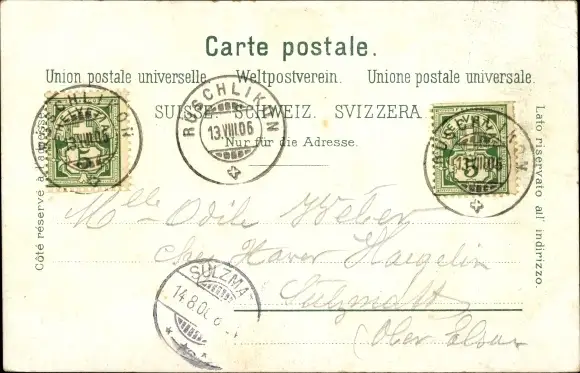 Carte postale.
Union postale universelle. Weltpostverein. Unione postale universale.
SUISSE. SCHWEIZ. SVIZZERA.
Nur für die Adresse.
Côté réservé à l'adresse.
Lato riservato all' indirizzo.
RÜSCHLIKON
13.VIII.06
RÜSCHLIKON
13.VIII.06
5
RÜSCHLIKON
13.VIII.06
5
Mlle Odile Weber
chez Xaver Haegelin
Sulzmatt
(Ober Elsass
SULZMA
14.8.06